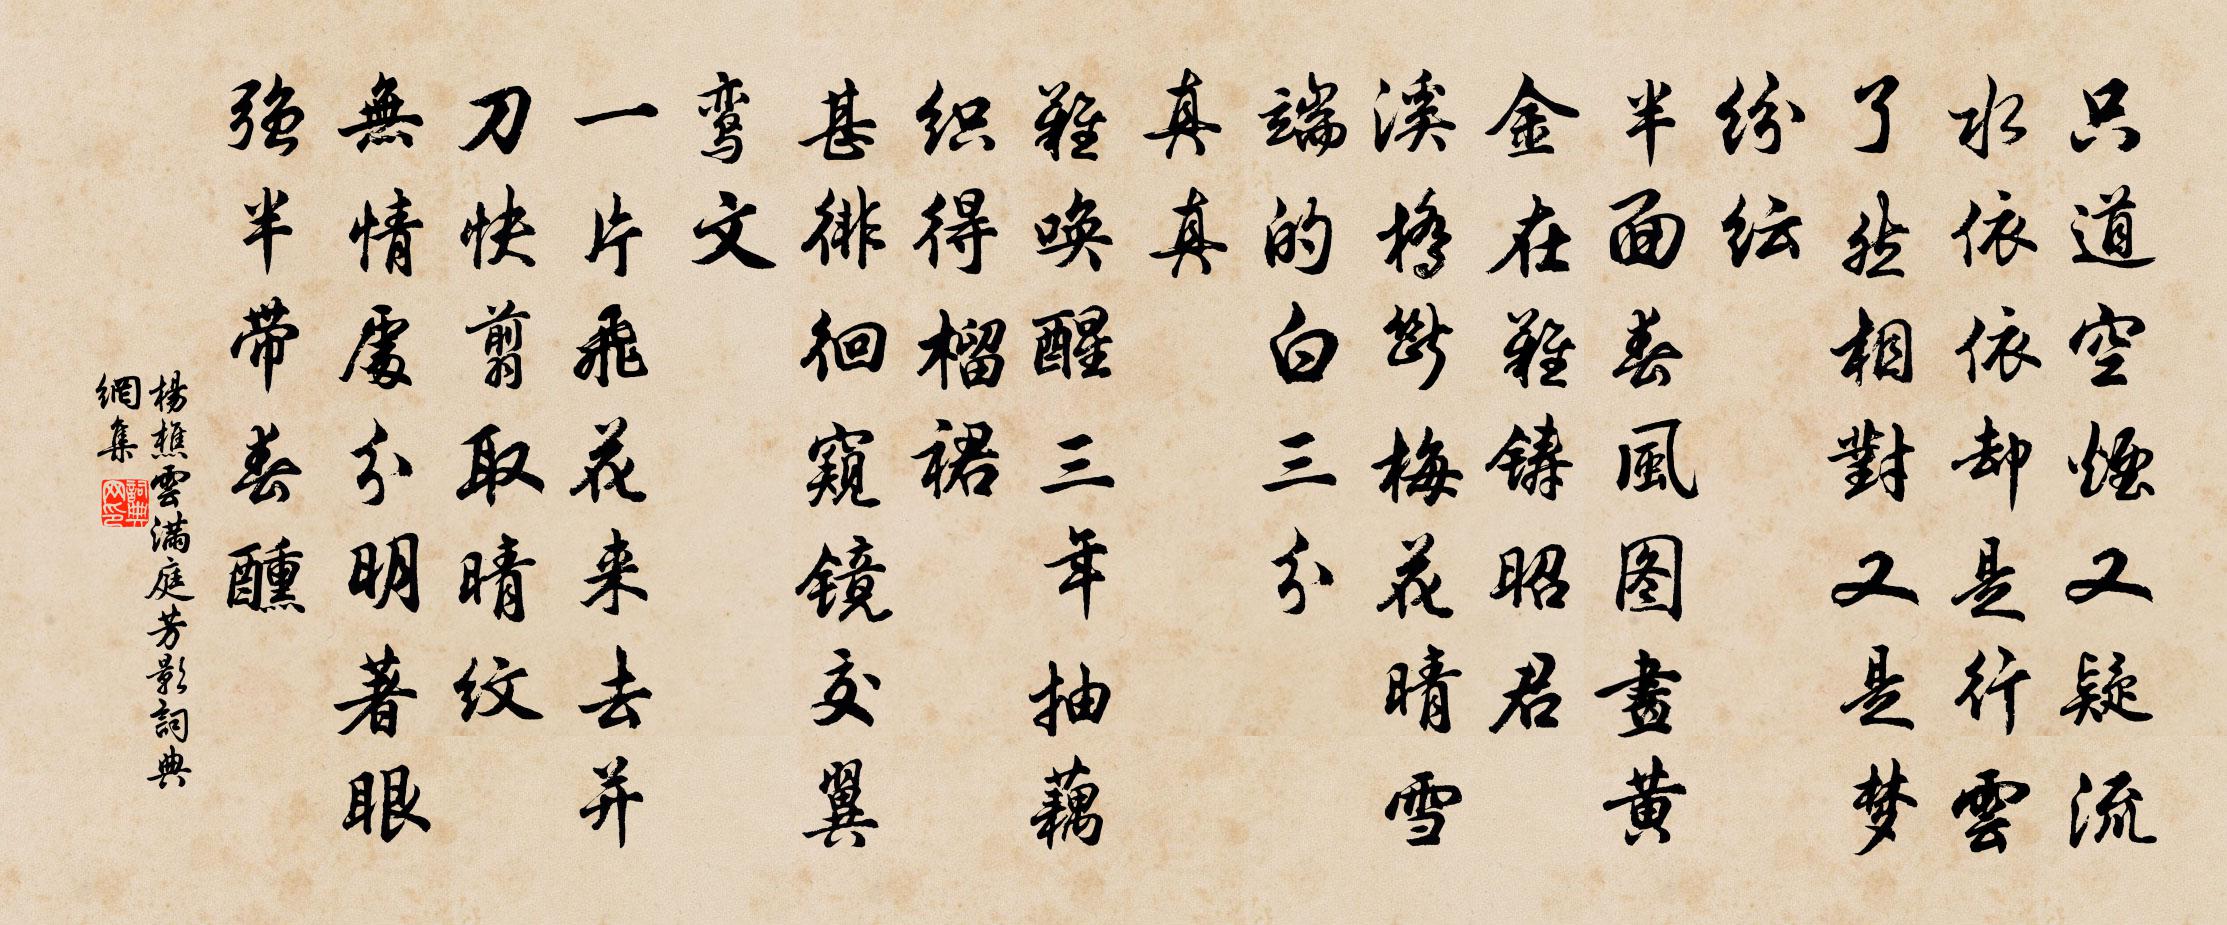 只道空煙又疑流
水依依却是行雲
了然相對又是梦
纷纭
半面春風图畫黄
金在難鑄昭君
溪橋断梅花晴雪
端的白三分
真真
難唤醒三年抽藕
织得榴裙
甚徘徊窥镜交翼
鸾文
一片飛花来去并
刀快剪取晴纹
無情處分明著眼
強半带春醺
楊樵雲满庭芳影詞典
網集
詞典网印